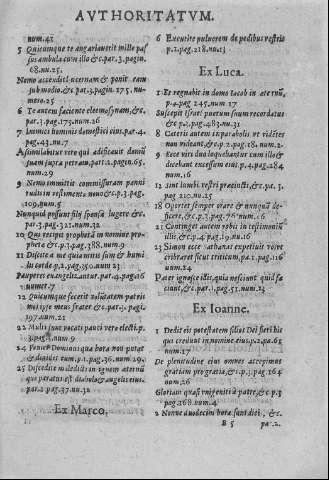 AVTHORITATVM.
num.42
5 Quicumque te angariauerit mille pas
sus ambula cum illo &c.par.3.pagin.
68.nu.25.
Nemo accendit lucernam & ponit eam
sub modio,& c.par.3.pagin.275. nu-
mero.25
6 Te autem faciente eleemosynam,&c.
par.3.pag.175.num.26
7 Inimici hominis domestici eius,pat.4.
pag.43.nu.7
Assimilabitur vero qui aedificauit domũ
suam supra petram.par.2.pagin.65.
num.29
9 Nemo immittit commissuram panni
rudis in vestimento nouo &c.p.3.pag.
109.num.5
Nunquid possunt filij sponsi lugere &c.
par.3.pag.321.num.32
10 Qui recipit prophetã in nomine pro-
phetæ & c.p.3.pag.388.num.9
11 Discite a me quia mitis sum & humi
lis corde p.2.pag.350.num.23
Pauperes euangelizantur.par.4.pag.16
numer.7
12 Quicumque fecerit voluntatem patris
mei ipse meus frater &c.par.3.pagin.
197.num.21
22 Multi sunt vocati pauci vero electi.p.
3.pag. .num.9
24 Nescit Dominus qua hora non putat
& diuidet eum.p.1.pag.36.num.29.
25 Discedite maledicti in ignem aeternũ
qui paratus est diabolo & angelis eius.
par.2.pag.37.nu.32
Ex Marco.
6 Excutite puluerem de pedibus vestris
p.2.pag.218.nu.23
Ex Luca.
1 Et regnabit in domo Iacob in aeternũ,
p.4.pag 245.num.17
Suscepit Israel puerum suum recordatus
&c.p.2.pag.483.nu.31
8 Cæteris autem in parabolis vt vidétes
non videant,&c p.2.pag.18.num.2.
9 Ecce viri duo loquebantur cum illo &
dicebant excessum eius.p.4.pag.284
num.16
12 Sint lumbi vestri præcincti,& c.pa.3.
pag.210.nu.25
18 Oportet semper orare & nunquã de-
ficere, & c.p.3.pag.76 num.16
21 Continget autem vobis in testimoniũ
illis,& c.p.4 pag.19.nu.16
22 Simon ecce Sathanas expetiuit vt vos
cribraret sicut triticum,pa.1.pag.116
num.24
Pater ignosce illis,quia nesciunt quid fa
ciunt,& c.par.1.pag.51.num.23
Ex Ioanne.
1 Dedit eis potestatem filios Dei fieri his
qui credunt in nomine eius.p.2.pa.65
num.17
De plenitudine eius omnes accepimus
gratiam pro gratia,& c.p.1.pag.164
num.26
Gloriam quasi vnigeniti a patre,& c.p.3
pag.268.num.4
2 Nonne duodecim horæ sunt diei, & c.
B 5 pa.2.